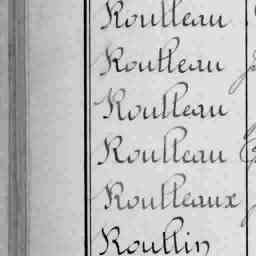 Roulleau
Roulleau
Roulleau
Roulleau
Roulleaux
Roullin